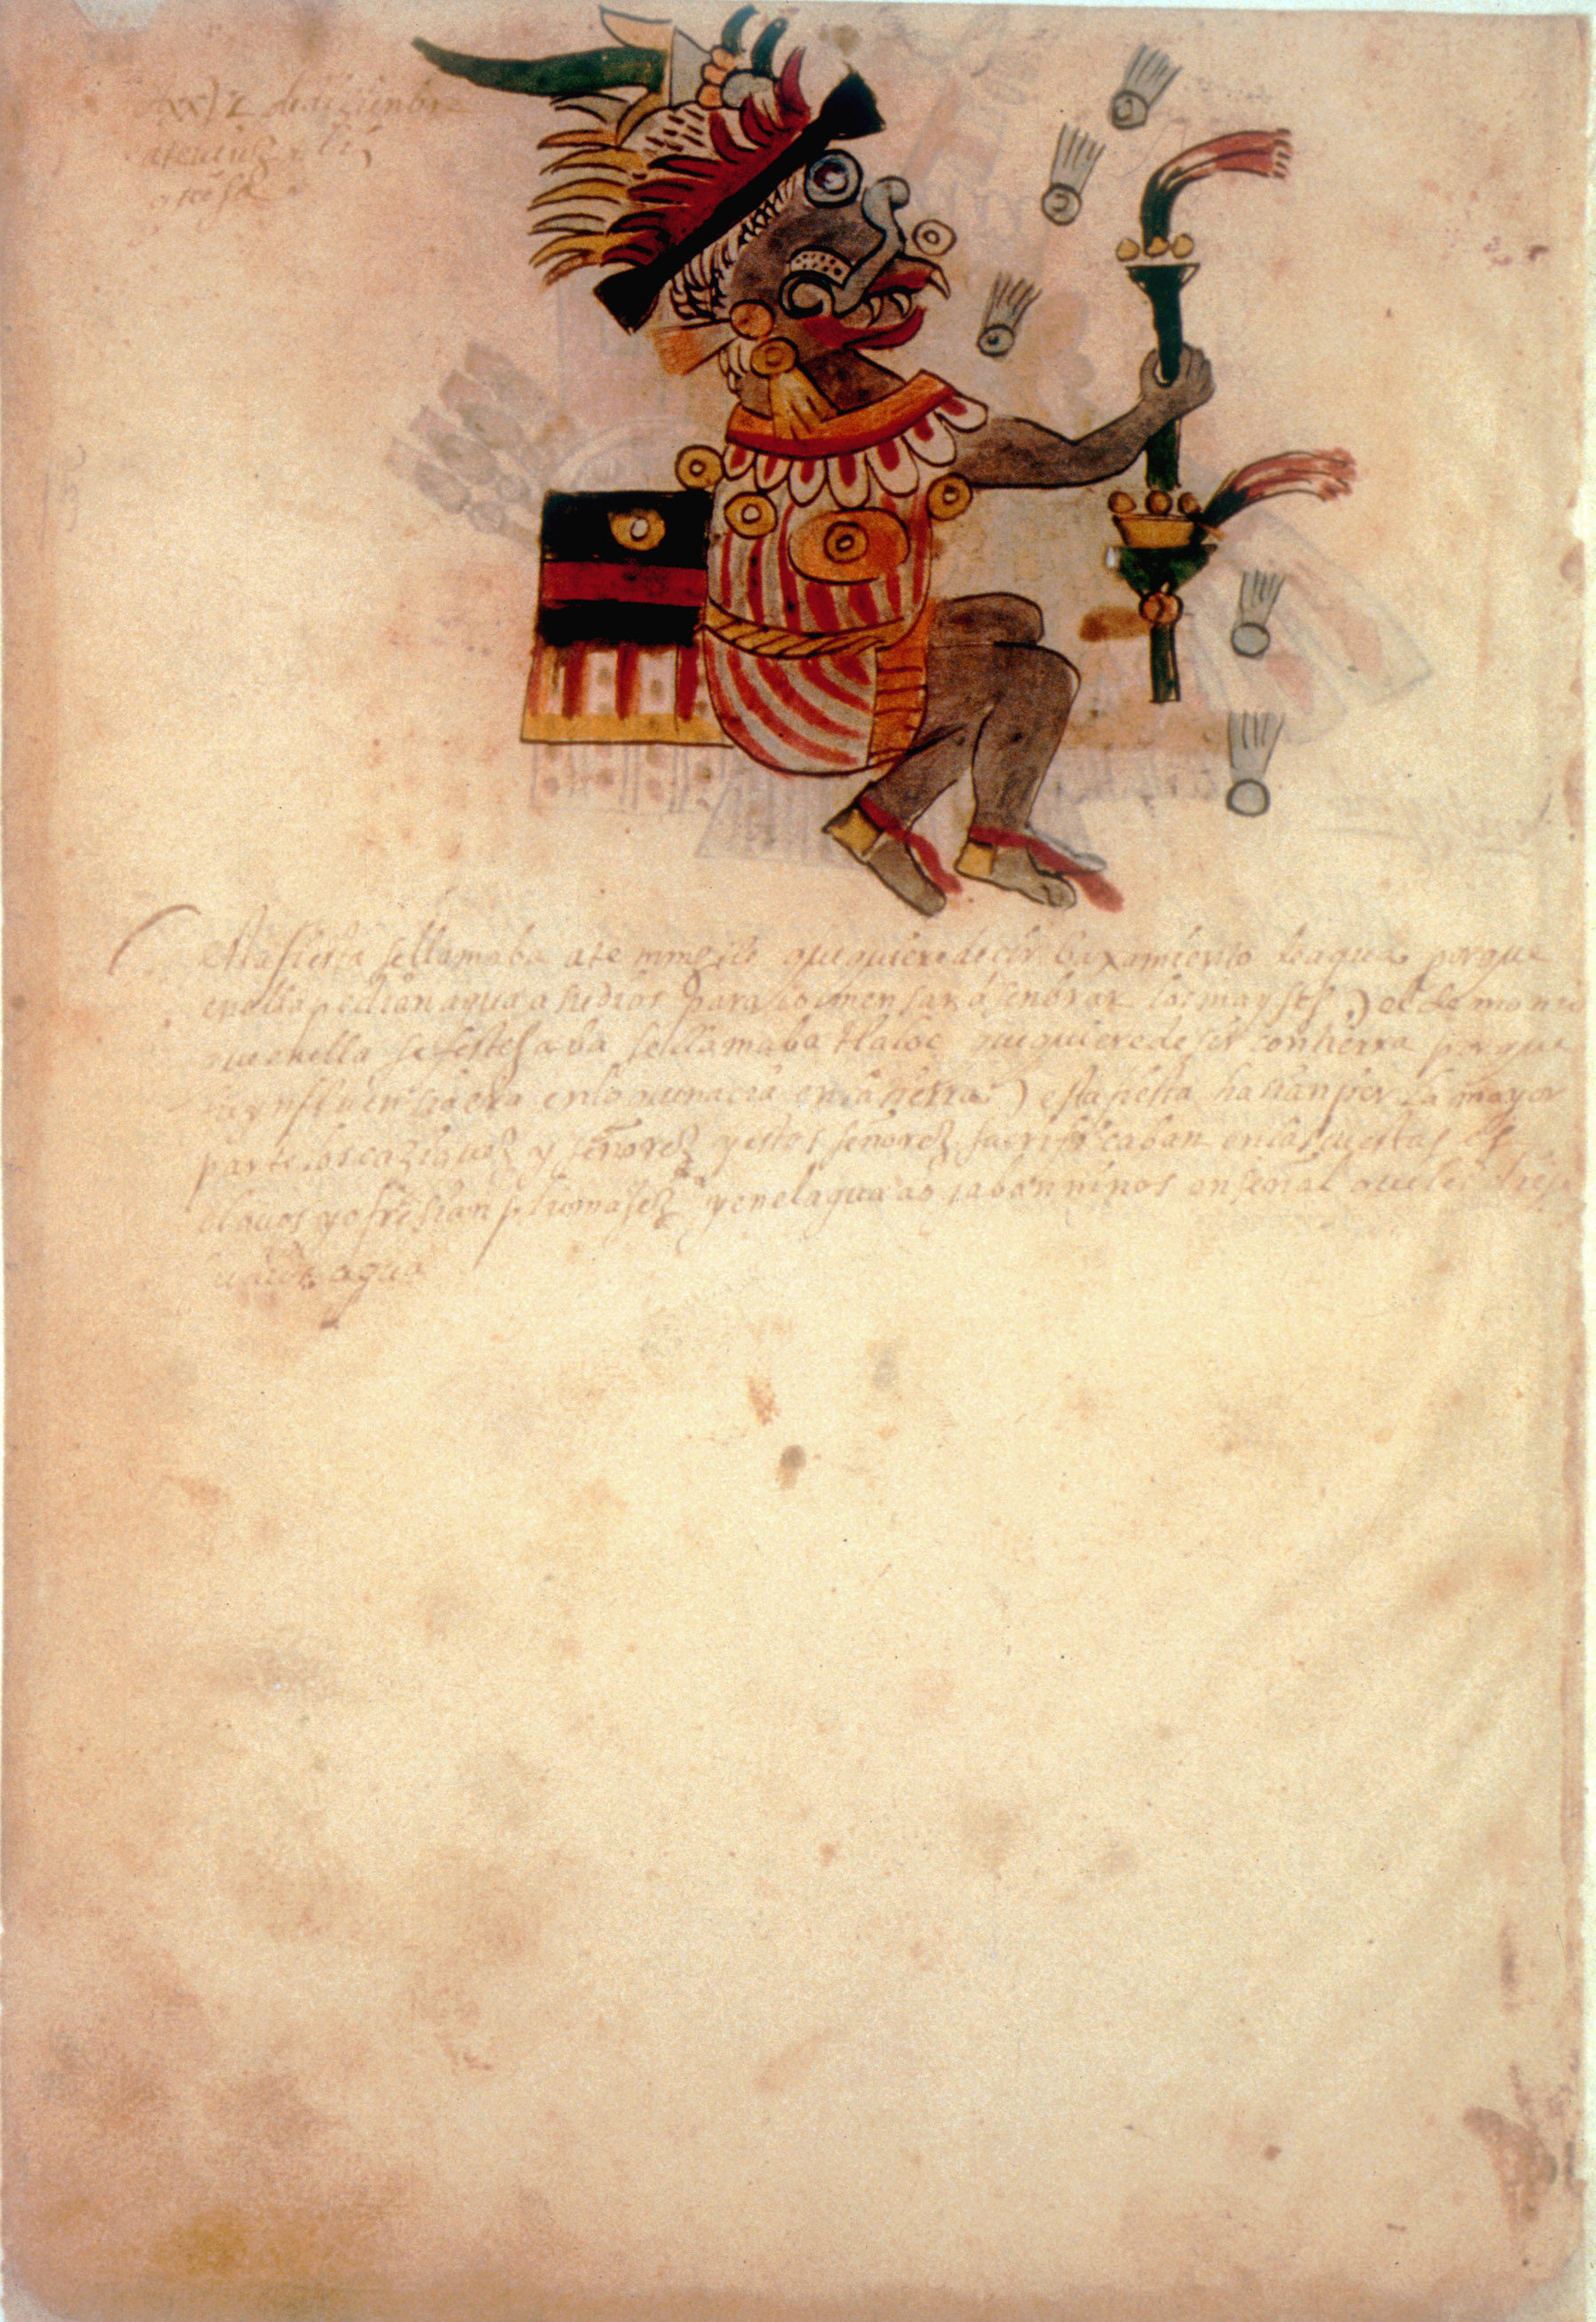 de diziembre
esta fiesta se llamaba atemmoztli que quiere dezir baxamiento de agua porque
en ella pedian agua a su dios para comensar a senbrar los mayses y el demonio
que en ella se festesaba se llamaba tlaloc que quiere desir con tierra porque
su ynfluensia era en lo que nacia en la tierra) esta fiesta hasian por la mayor
parte los caziques y señores y estos señores sacrificaban en las cuestas es
clavos y ofresian plumajes y en el agua ao gaban niños en señal que les
agua